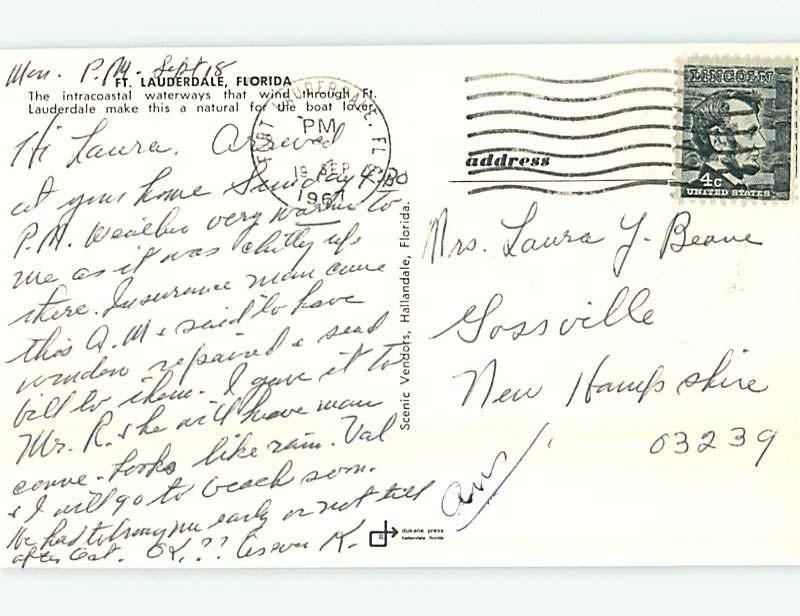 Mon. P.M. Sept 18
FT. LAUDERDALE, FLORIDA
The intracoastal waterways that wind through Ft.
Lauderdale make this a natural for the boat lover.
Hi Laura. Arrived
at your home Sunday 4:30
P.M. Weather very warm to
me as it was chilly up
there. Insurance man came
this A.M & said to have
window repaired & send
bill to them. I gave it to
Mr. R. & he will have man
come. Looks like rain. Val
& I will go to beach soon.
early or not till
after Oct. OK.?? K.
FORT LAUDERDALE, FLA
PM
19 SEP
1967
LINCOLN
4c
UNITED STATES
address
Mrs. Laura Y. Beane
Gossville
New Hampshire
03239
ans.
Scenic Vendors, Hallandale, Florida.
dukane press
hallandale florida